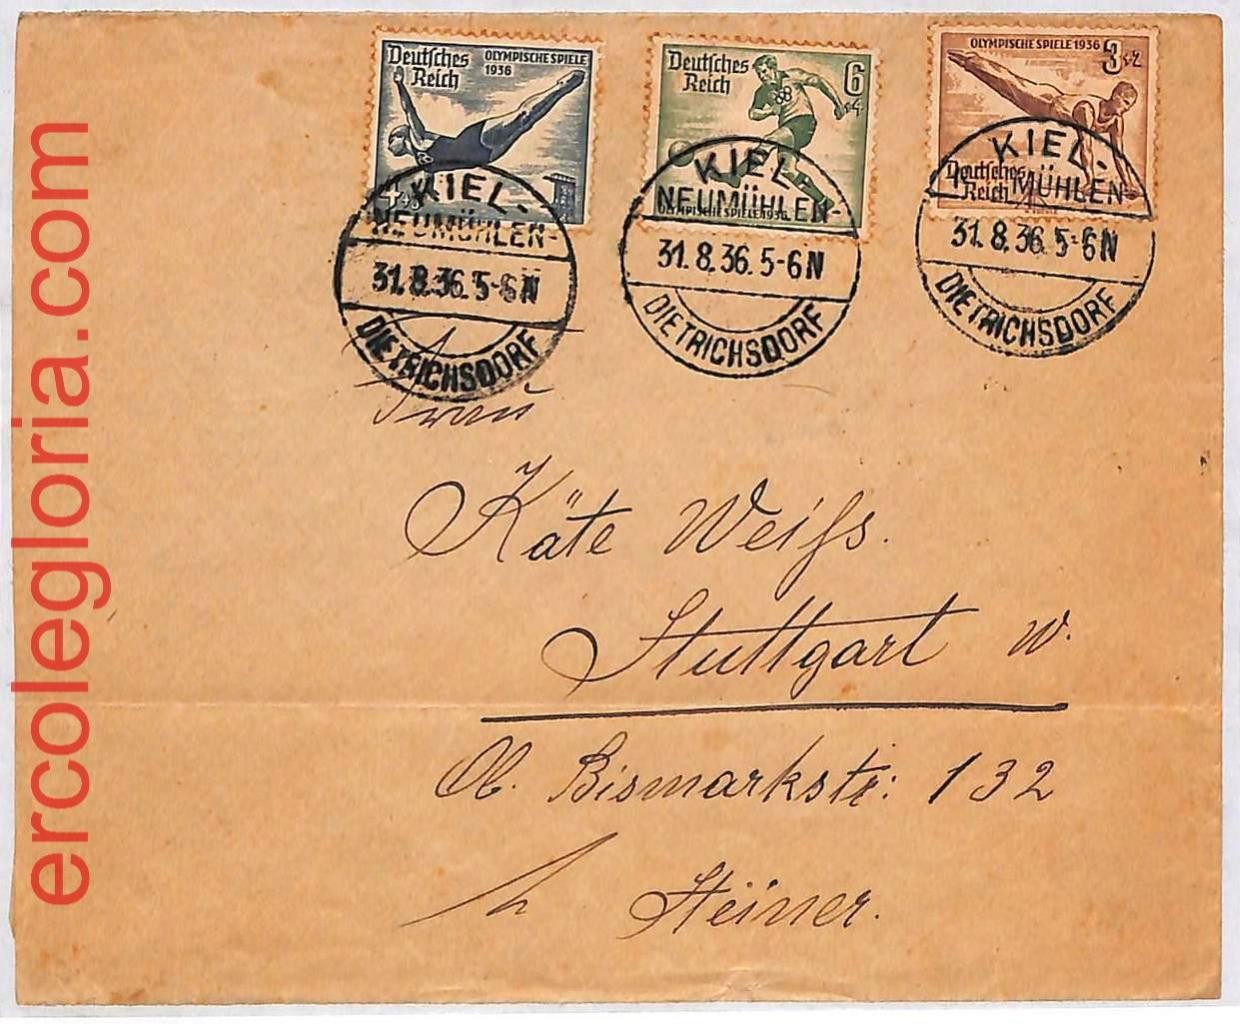 ercolegloria.com
Deutsches Reich
OLYMPISCHE SPIELE 1936
4+3
KIEL-
NEUMÜHLEN-
31.8.36.5-6N
DIETRICHSDORF
Deutsches Reich
6
+4
OLYMPISCHE SPIELE 1936
KIEL-
NEUMÜHLEN-
31.8.36.5-6N
DIETRICHSDORF
OLYMPISCHE SPIELE 1936
3+2
Deutsches Reich
KIEL-
MÜHLEN-
31.8.36.5-6N
DIETRICHSDORF
Frau
Käte Weiſs.
Stuttgart W.
Ob. Bismarkstr: 132
Steiner.